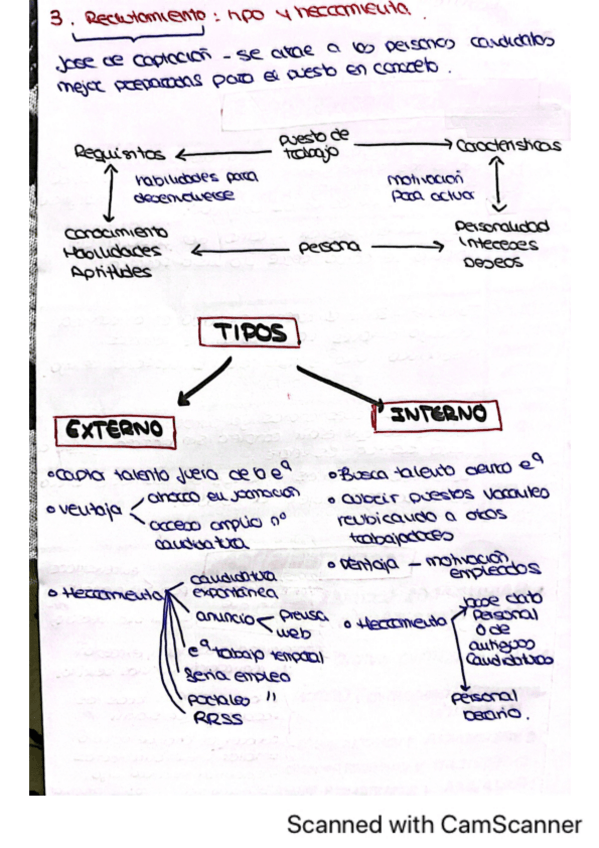 3. Reclutamiento: tipo y herramienta.
fase de captación - se atrae a los personas candidatos
mejor preparadas para el puesto en concreto.
Requisitos
puesto de
trabajo
Características
habilidades para
desenvolverse
motivación
para actuar
Conocimiento
Habilidades
Aptitudes
persona
Personalidad
Intereses
Deseos
TIPOS
EXTERNO
INTERNO
• Captar talento fuera de la eª
• ventaja
ahorro en formación
acceso amplio nº
candidatura
• Herramienta
candidatura
espontánea
anuncio
prensa
web
eª trabajo temporal
feria empleo
portales "
RRSS
• Busca talento dentro eª
• cubrir puestos vacantes
reubicando a otros
trabajadores
• Ventaja - motivación
empleados
• Herramienta
base dato
personal
o de
antiguos
candidatos
personal
becario.
Scanned with CamScanner